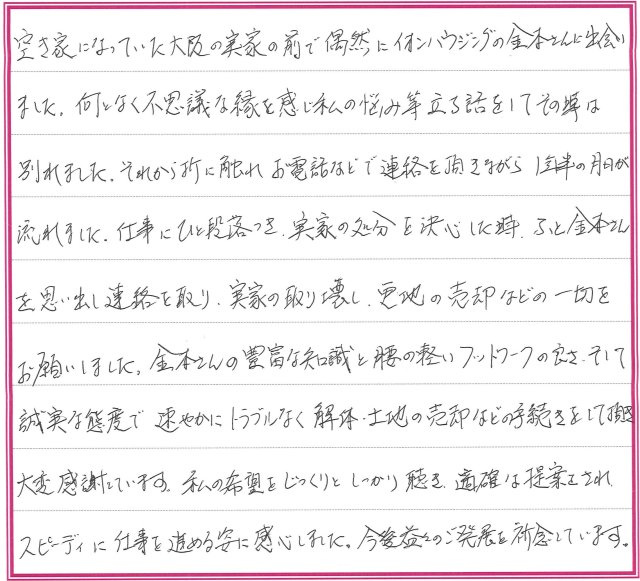 空き家になっていた大阪の実家の前で偶然にイオンハウジングの金本さんに出会い
ました。何となく不思議な縁を感じ私の悩み等立ち話をしてその時は
別れました。それから折に触れお電話などで連絡を頂きながら1年半の月日が
流れました。仕事にひと段落つき、実家の処分を決心した時、ふと金本さん
を思い出し連絡を取り、実家の取り壊し、更地の売却などの一切を
お願いしました。金本さんの豊富な知識と腰の軽いフットワークの良さ、そして
誠実な態度で速やかにトラブルなく解体・土地の売却などの手続きをして頂き
大変感謝しています。私の希望をじっくりとしっかり聴き、適確な提案をされ
スピーディに仕事を進める姿に感心しました。今後益々のご発展を祈念しています。